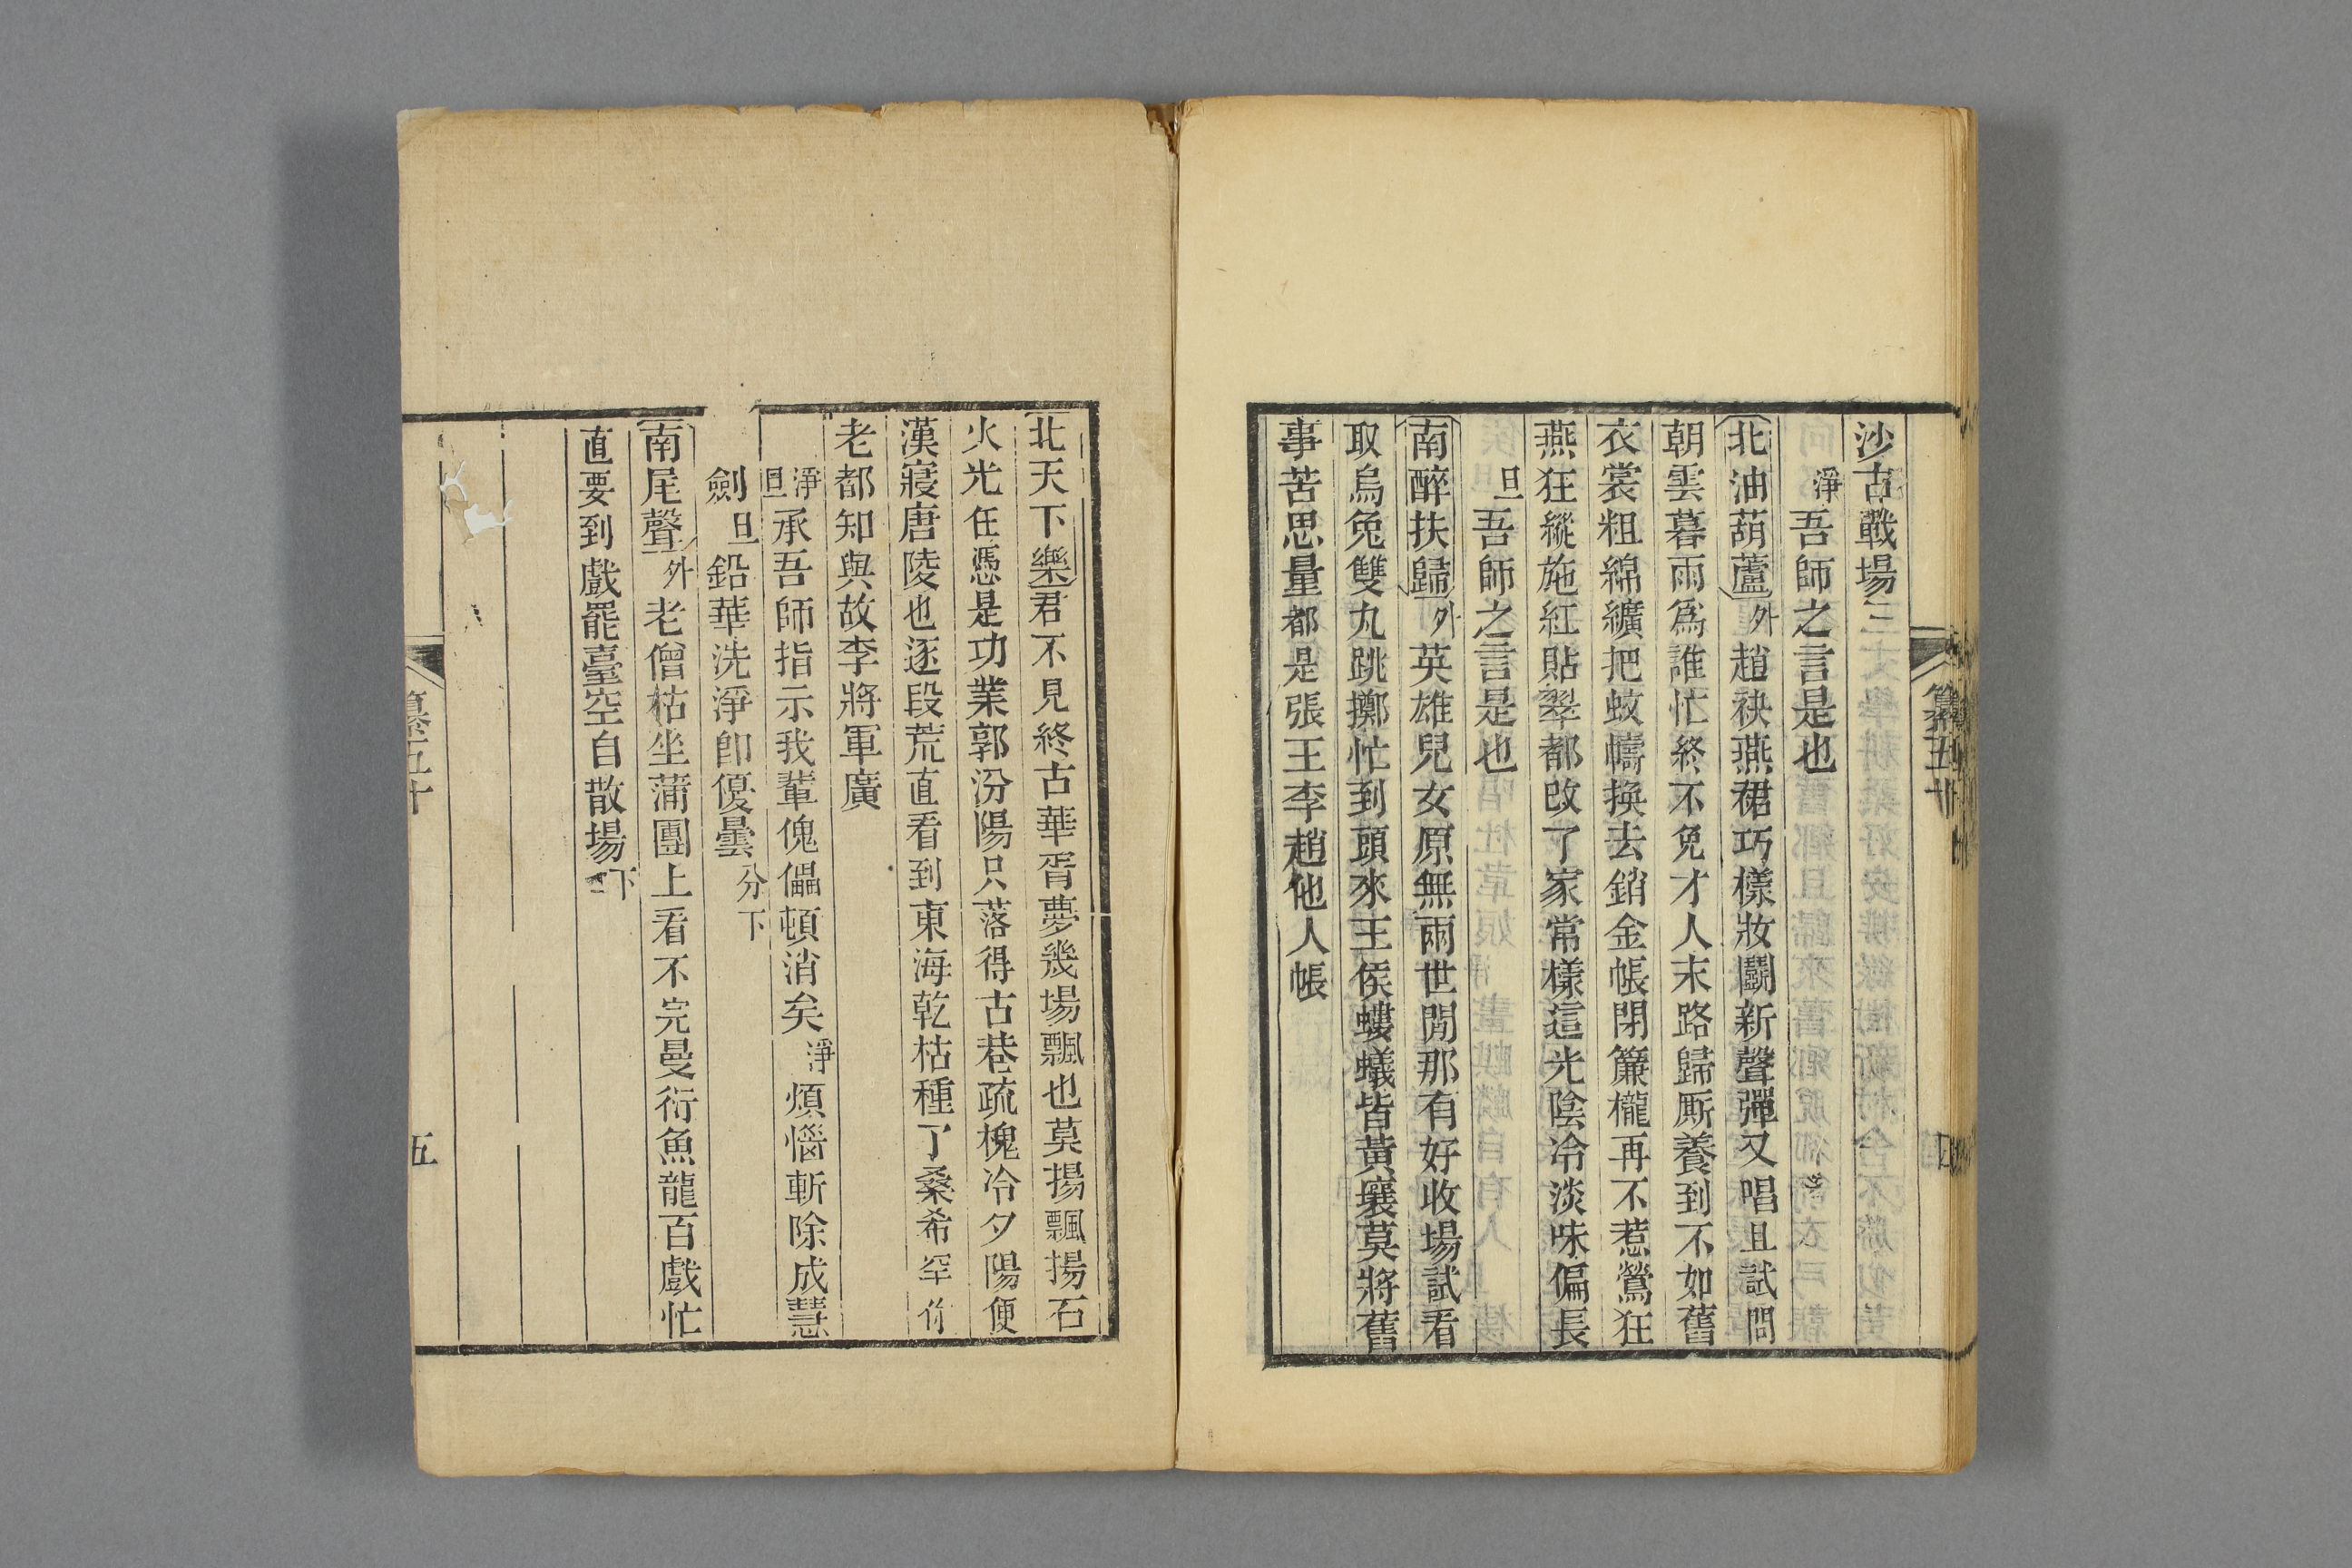 沙古戰場
淨吾師之言是也
北油葫蘆外趙袂燕裙巧樣妝鬭新聲彈又唱且試問
朝雲暮雨爲誰忙終不免才人末路歸厮養到不如舊
衣裳粗綿纊把蚊幬換去銷金帳閉簾櫳再不惹鶯狂
燕狂縱施紅貼翠都改了家常樣這光陰冷淡味偏長
旦吾師之言是也
南醉扶歸外英雄兒女原無兩世間那有好收場試看
取烏兔雙丸跳擲忙到頭來王侯螻蟻皆黃壤莫將舊
事苦思量都是張王李趙他人帳
北天下樂君不見終古華胥夢幾場飄也莫揚飄揚石
火光任憑是功業郭汾陽只落得古巷疏槐冷夕陽便
漢寢唐陵也逐段荒直看到東海乾枯種了桑希罕什
老都知與故李將軍廣
淨旦承吾師指示我輩傀儡頓消矣淨煩惱斬除成慧
劍旦鉛華洗淨卽優曇分下
南尾聲外老僧枯坐蒲團上看不完曼衍魚龍百戲忙
直要到戲罷臺空自散場下
纂五十
五